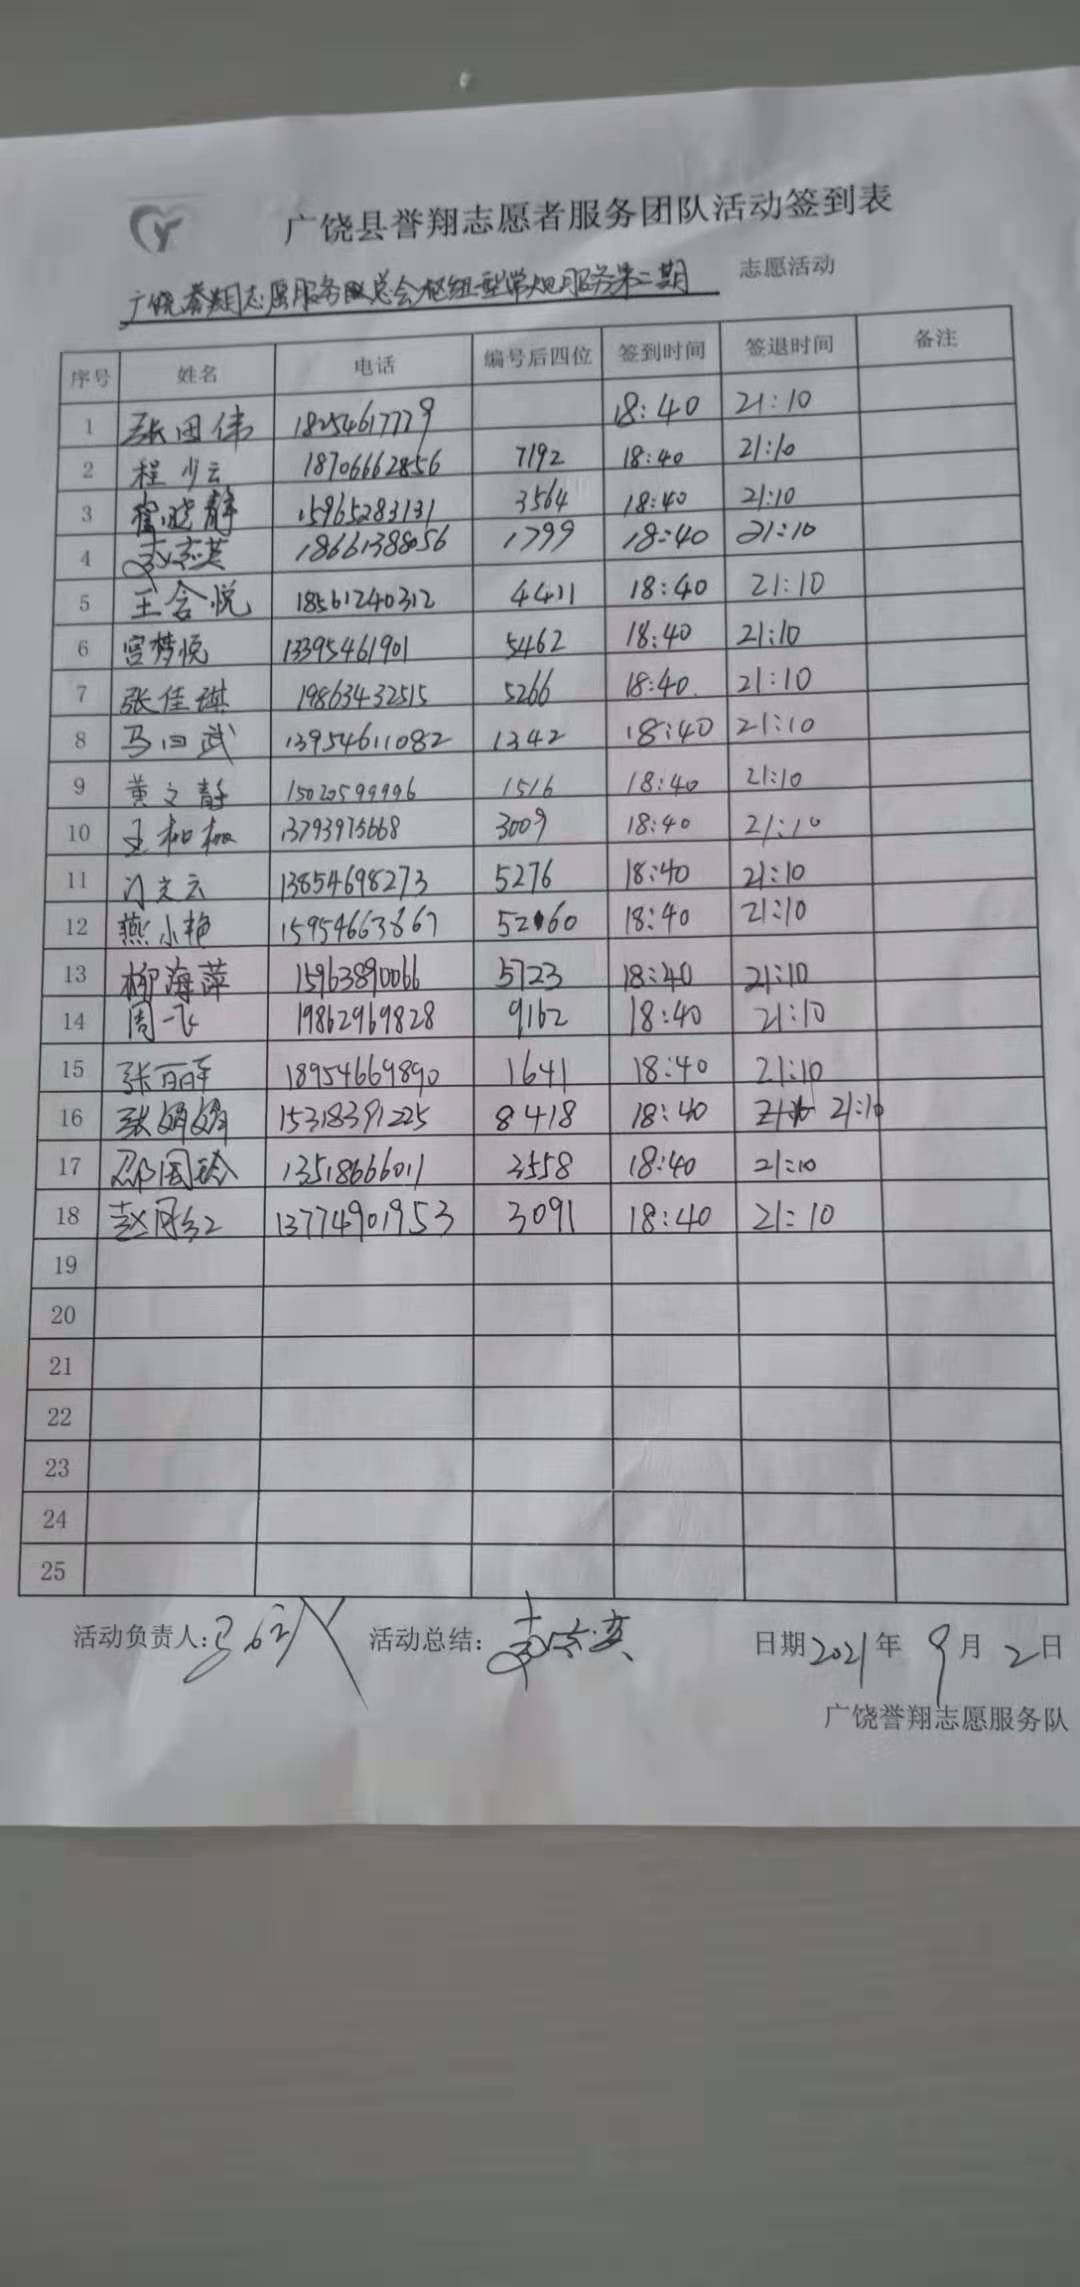 广饶县誉翔志愿者服务团队活动签到表
广饶誉翔志愿服务队总会枢纽型常规服务第二期 志愿活动
序号 姓名 电话 编号后四位 签到时间 签退时间 备注
1 张田伟 18254617779 18:40 21:10
2 程少云 18706662856 7192 18:40 21:10
3 晓静 15965283131 3564 18:40 21:10
4 18661388056 1799 18:40 21:10
5 王含悦 18561240312 4411 18:40 21:10
6 宫梦悦 13395461901 5462 18:40 21:10
7 张佳琪 19863432515 5266 18:40 21:10
8 马曰武 13954611082 1342 18:40 21:10
9 黄文静 15020599996 1516 18:40 21:10
10 王柳柳 13793975668 3009 18:40 21:10
11 门文云 13854698273 5276 18:40 21:10
12 燕小艳 15954663867 5260 18:40 21:10
13 柳海萍 15963890066 5723 18:40 21:10
14 周飞 19862969828 9162 18:40 21:10
15 张丽军 18954669890 1641 18:40 21:10
16 张娟娟 15318391225 8418 18:40 21:10
17 邵国玲 13518666011 3558 18:40 21:10
18 赵风红 13774901953 3091 18:40 21:10
19
20
21
22
23
24
25
活动负责人: 活动总结: 日期2021年9月2日
广饶誉翔志愿服务队